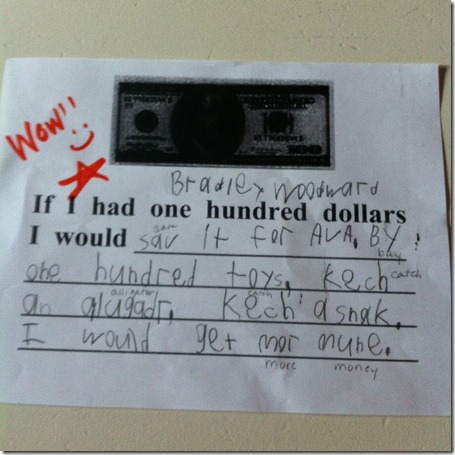 Wow!!
Bradley Woodward
If I had one hundred dollars
save
I would sav it for AVA. By
buy
one hundred toys. kech
catch
alligator catch
an alugadr. kech a snak.
I would get mor mune.
more money